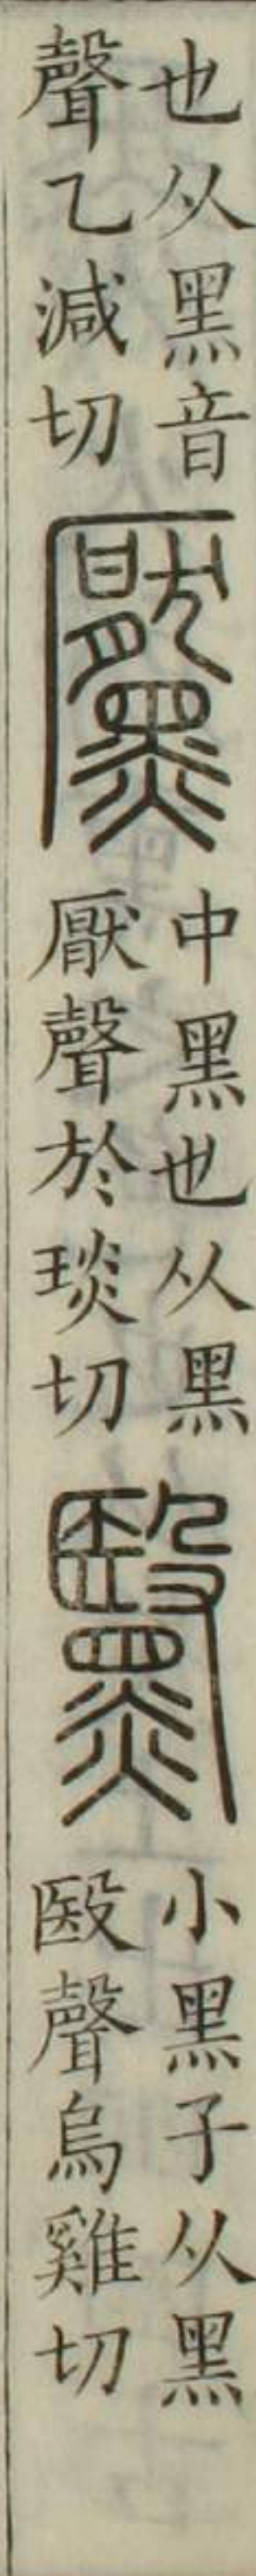 也从黑音
聲乙減切
黶
中黑也从黑
厭聲於琰切
黳
小黑子从黑
殹聲烏雞切